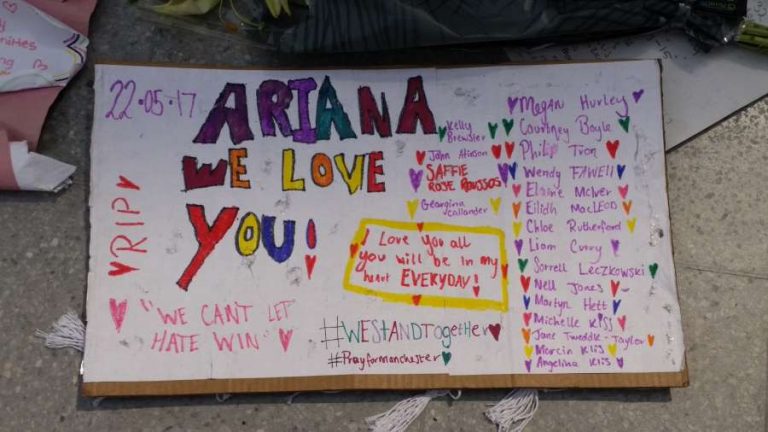 22·05·17
ARIANA
WE LOVE
YOU!
♥RIP♥
"WE CAN'T LET
HATE WIN"
I Love You all
you will be in my
heart EVERYDAY!
#WESTANDTogetHer
#Prayformanchester
Kelly
Brewster
John Atkinson
SAFFIE
ROSE ROUSSOS
Georgina
Callander
Megan Hurley
Courtney Boyle
Philip Tron
Wendy FAWELL
Elaine McIver
Eilidh MacLEOD
Chloe Rutherford
Liam Curry
Sorrell Leczkowski
Nell Jones
Martyn Hett
Michelle KISS
Jane Tweddle-Taylor
Marcin Klis
Angelina Klis